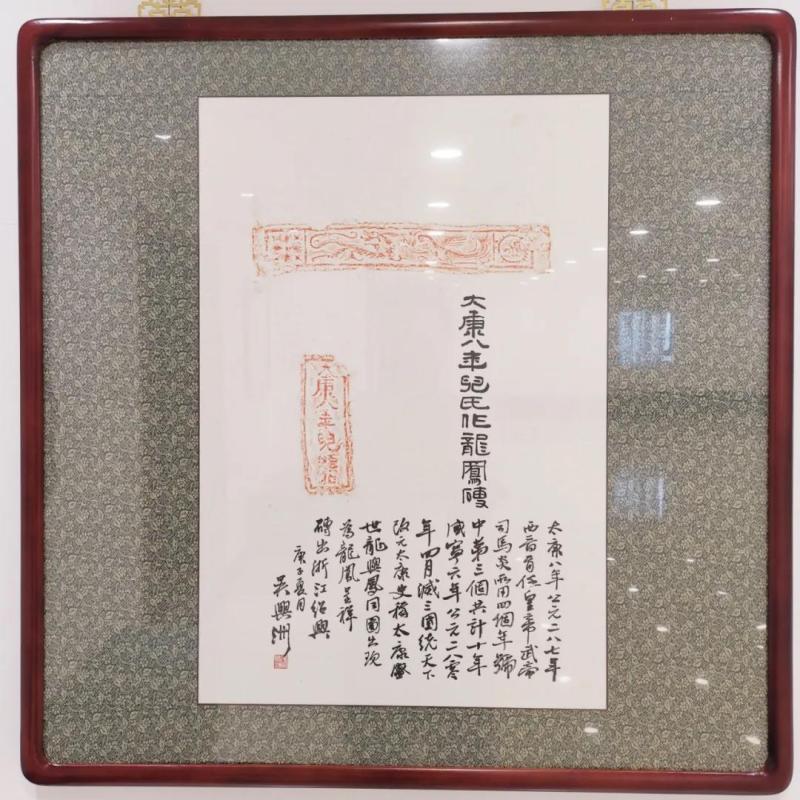 大康八年兒氏作龍鳳磚
大康八年兒
太康八年公元二八七年
西晉首位皇帝武帝
司馬炎所用四個年號
中第三個共計十年
咸寧六年公元二八零
年四月滅三國統天下
改元太康史稱太康盛
世龍與鳳同圖出現
為龍鳳呈祥
磚出浙江紹興
庚子夏月
吳興洲